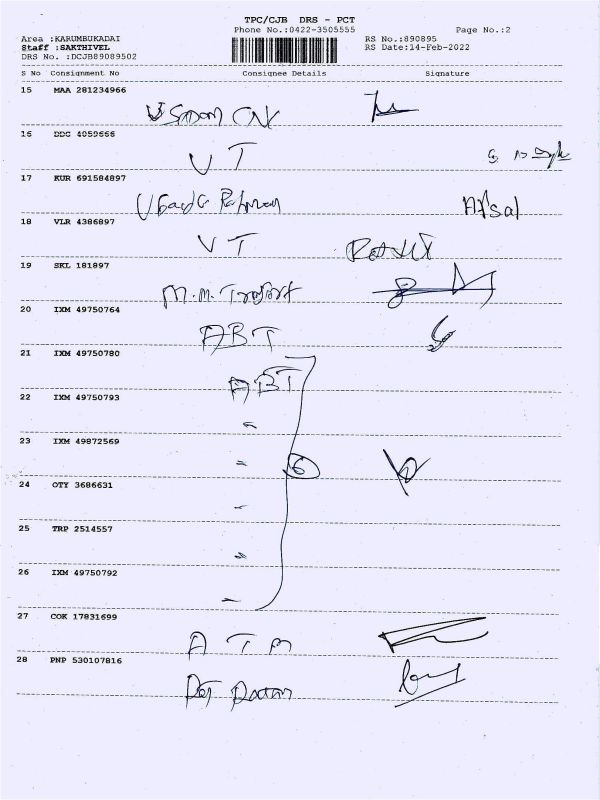 TPC/CJB DRS - PCT
Phone No.:0422-3505555
Page No.:2
Area :KARUMBUKADAI
RS No.:890895
Staff :SAKTHIVEL
RS Date:14-Feb-2022
DRS No. :DCJB89089502
S No Consignment No Consignee Details Signature
15 MAA 281234966
16 DDG 4059666
V T
17 KUR 691584897
Rahman Afsal
18 VLR 4386897
V T
19 SKL 181897
M.M. Transport
20 IXM 49750764
ABT
21 IXM 49750780
ABT
22 IXM 49750793
23 IXM 49872569
6
24 OTY 3686631
25 TRP 2514557
26 IXM 49750792
27 COK 17831699
A T M
28 PNP 530107816